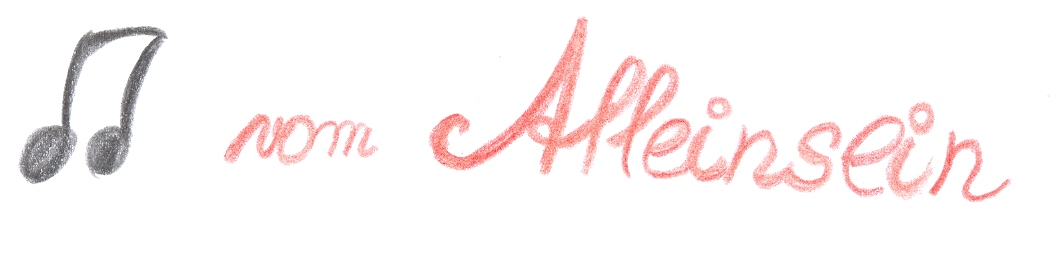 vom Alleinsein